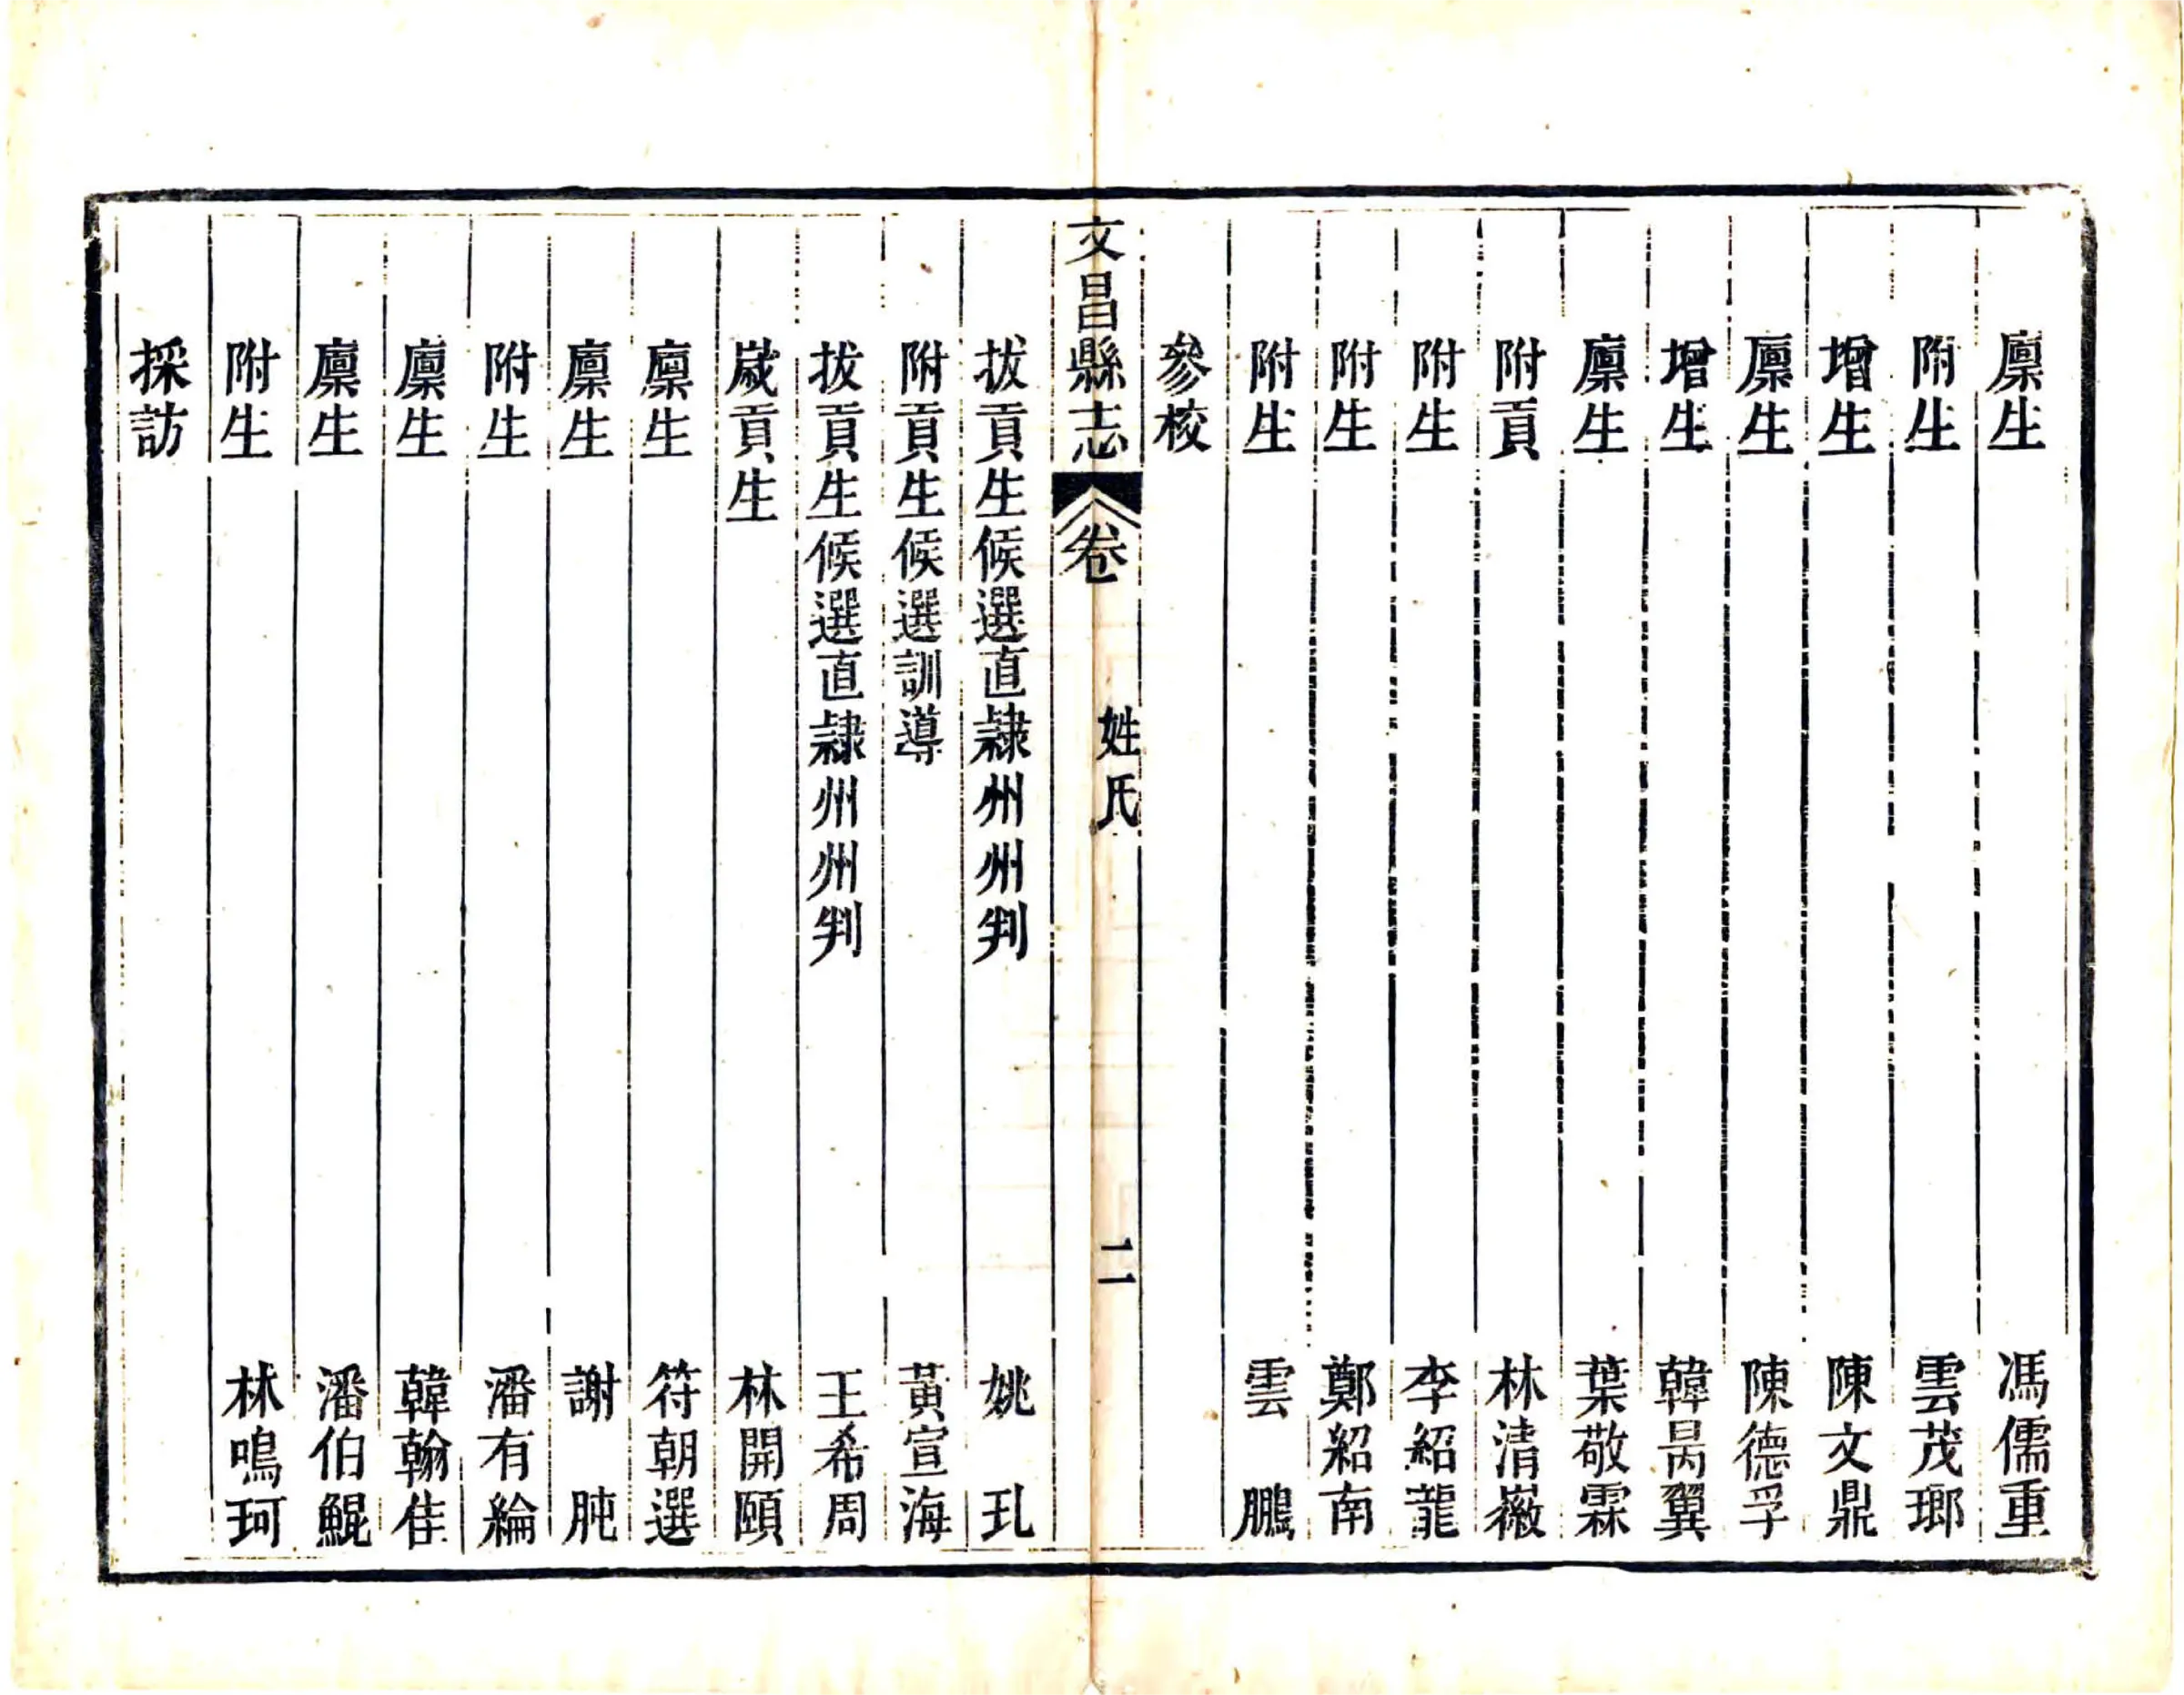 廩生 馮儒重
附生 雲茂瑯
增生 陳文鼎
廩生 陳德孚
增生 韓昺翼
廩生 葉敬霖
附貢 林清嶶
附生 李紹龍
附生 鄭紹南
附生 雲鵬
參校
文昌縣志 卷 姓氏 二
拔貢生候選直隸州州判 姚玌
附貢生候選訓導 黃宣海
拔貢生候選直隸州州判 王希周
歲貢生 林開頤
廩生 符朝選
廩生 謝肫
附生 潘有綸
廩生 韓翰佳
廩生 潘伯鯤
附生 林鳴珂
採訪